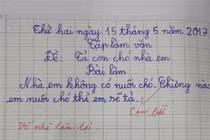 Thứ hai ngày 15 tháng 5 năm 2017
Tập làm văn
Đề: Tả con chó nhà em
Bài làm
Nhà em không có nuôi chó. Chừng nào
em nuôi chó thì em sẽ tả.
Con lười
Về nhà làm lại